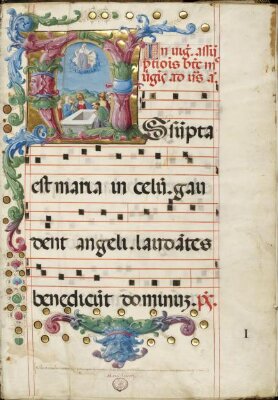 In uig. assū
ptiōis btē m
ugīĉ ad ūs a
Ssūpta
est maria in celū. gau
dent angeli. laudātes
benedicūt dominuz. ps.
I